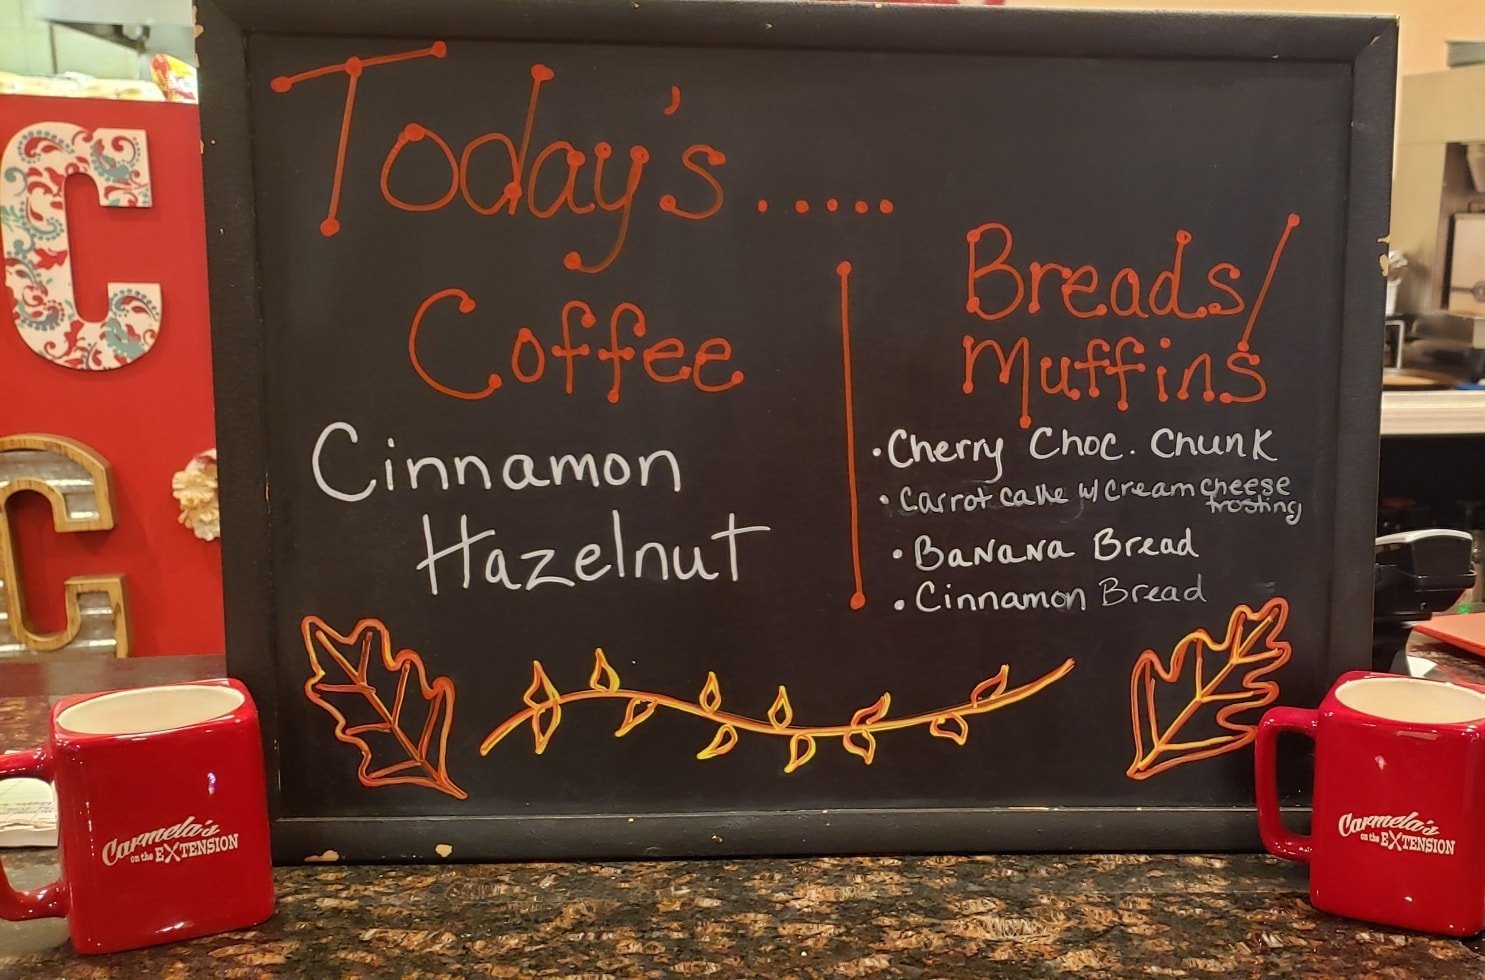 Today's.....
Coffee
Cinnamon
Hazelnut
Breads/
Muffins
• Cherry Choc. Chunk
• Carrot cake w/ Cream cheese
frosting
• BaNaNa Bread
• Cinnamon Bread
C
C
Carmela's
on the EXTENSION
Carmela's
on the EXTENSION